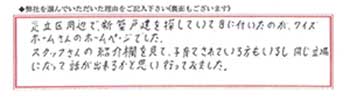 ◆弊社を選んでいただいた理由をご記入下さい(裏面もございます)
足立区周辺で新築戸建を探していて目に付いたのが、ワイズ
ホームさんのホームページでした。
スタッフさんの紹介欄を見て、子育てされている方もいるし同じ立場
になって話が出来るかと思い行ってみました。